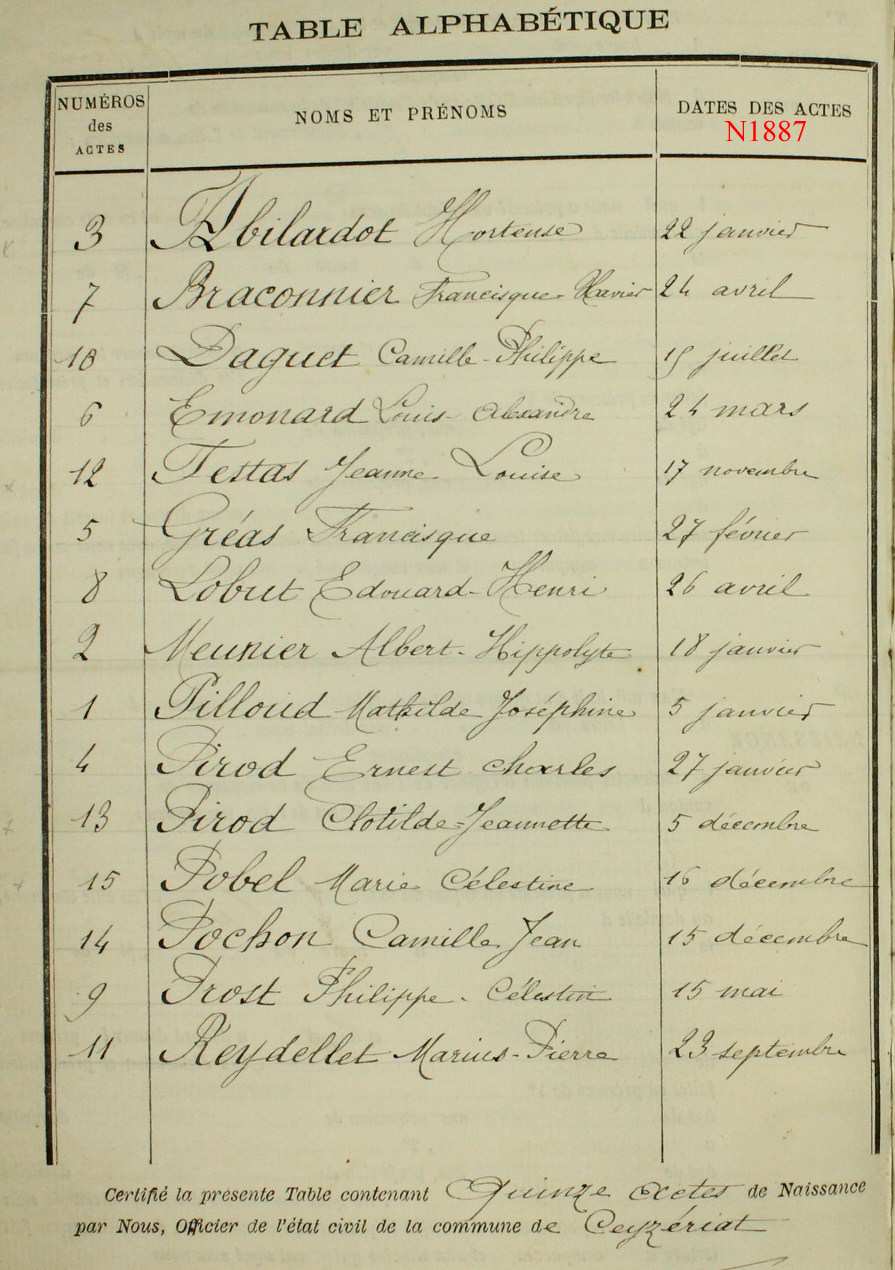 TABLE ALPHABÉTIQUE
NUMÉROS des ACTES NOMS ET PRÉNOMS DATES DES ACTES
N1887
3 Abilardot Hortense 22 janvier
7 Braconnier Francisque Xavier 24 avril
10 Daguet Camille-Philippe 15 juillet
6 Emonard Louis-Alexandre 24 mars
12 Festas Jeanne-Louise 17 novembre
5 Gréas Francisque 27 février
8 Lobut Edouard-Henri 26 avril
2 Meunier Albert-Hippolyte 18 janvier
1 Pilloud Mathilde Joséphine 5 janvier
4 Pirod Ernest Charles 27 janvier
13 Pirod Clotilde-Jeannette 5 décembre
15 Pobel Marie Célestine 16 décembre
14 Pochon Camille Jean 15 décembre
9 Prost Philippe-Célestin 15 mai
11 Reydellet Marius-Pierre 23 septembre
Certifié la présente Table contenant Quinze Actes de Naissance
par Nous, Officier de l'état civil de la commune de Ceyzériat